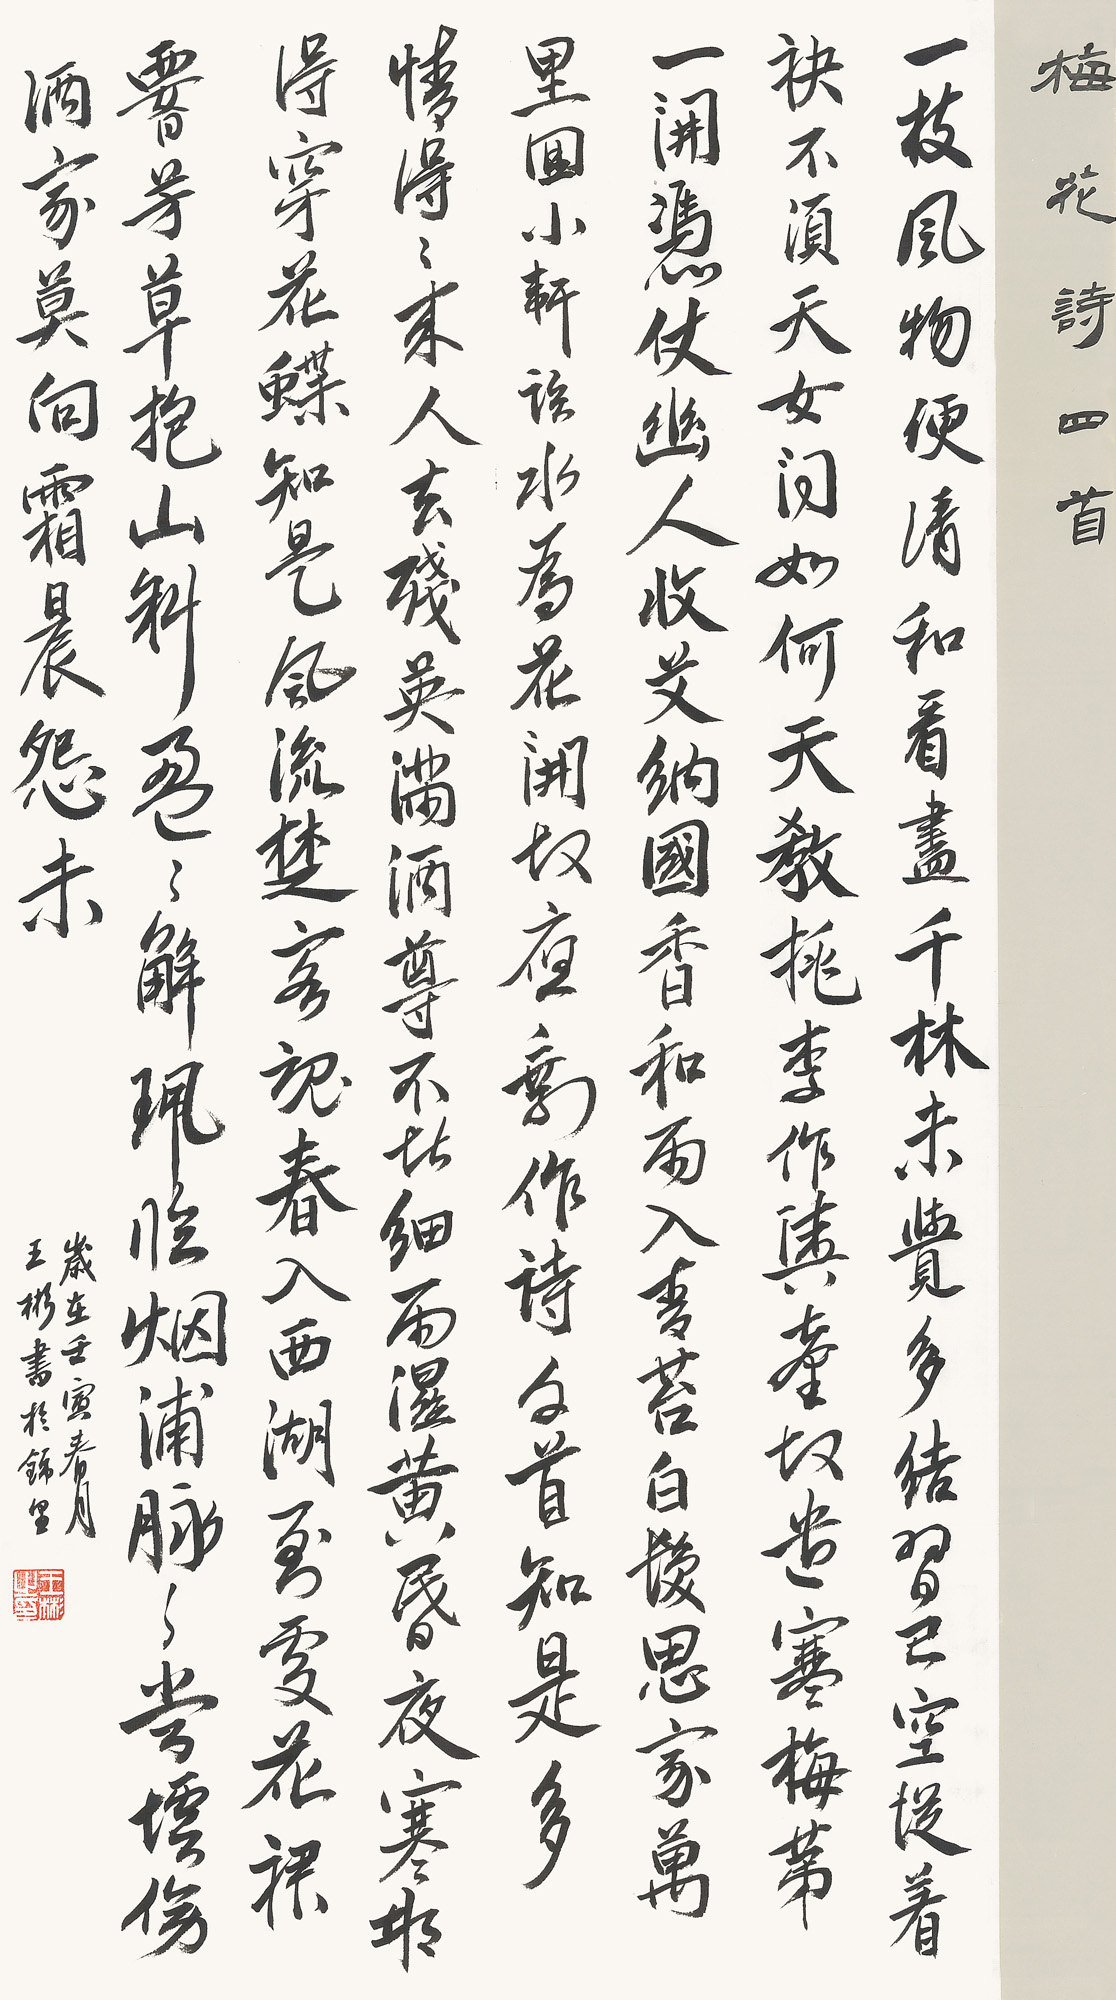 梅花詩四首
一枝風物便清和看盡千林未覺多結習已空從着
袂不須天女問如何天教桃李作輿臺故遣寒梅第
一開憑仗幽人收艾納國香和雨入青苔白髮思家萬
里回小軒臨水為花開故應剩作詩千首知是多
情得〻來人去殘英滿酒尊不堪細雨濕黃昏夜寒那
得穿花蝶知是風流楚客魂春入西湖到處花裙
腰芳草抱山斜盈〻解珮臨烟浦脉〻當壚傍
酒家莫向霜晨怨未
歲在壬寅春月
王彬書於錦里
王彬之印